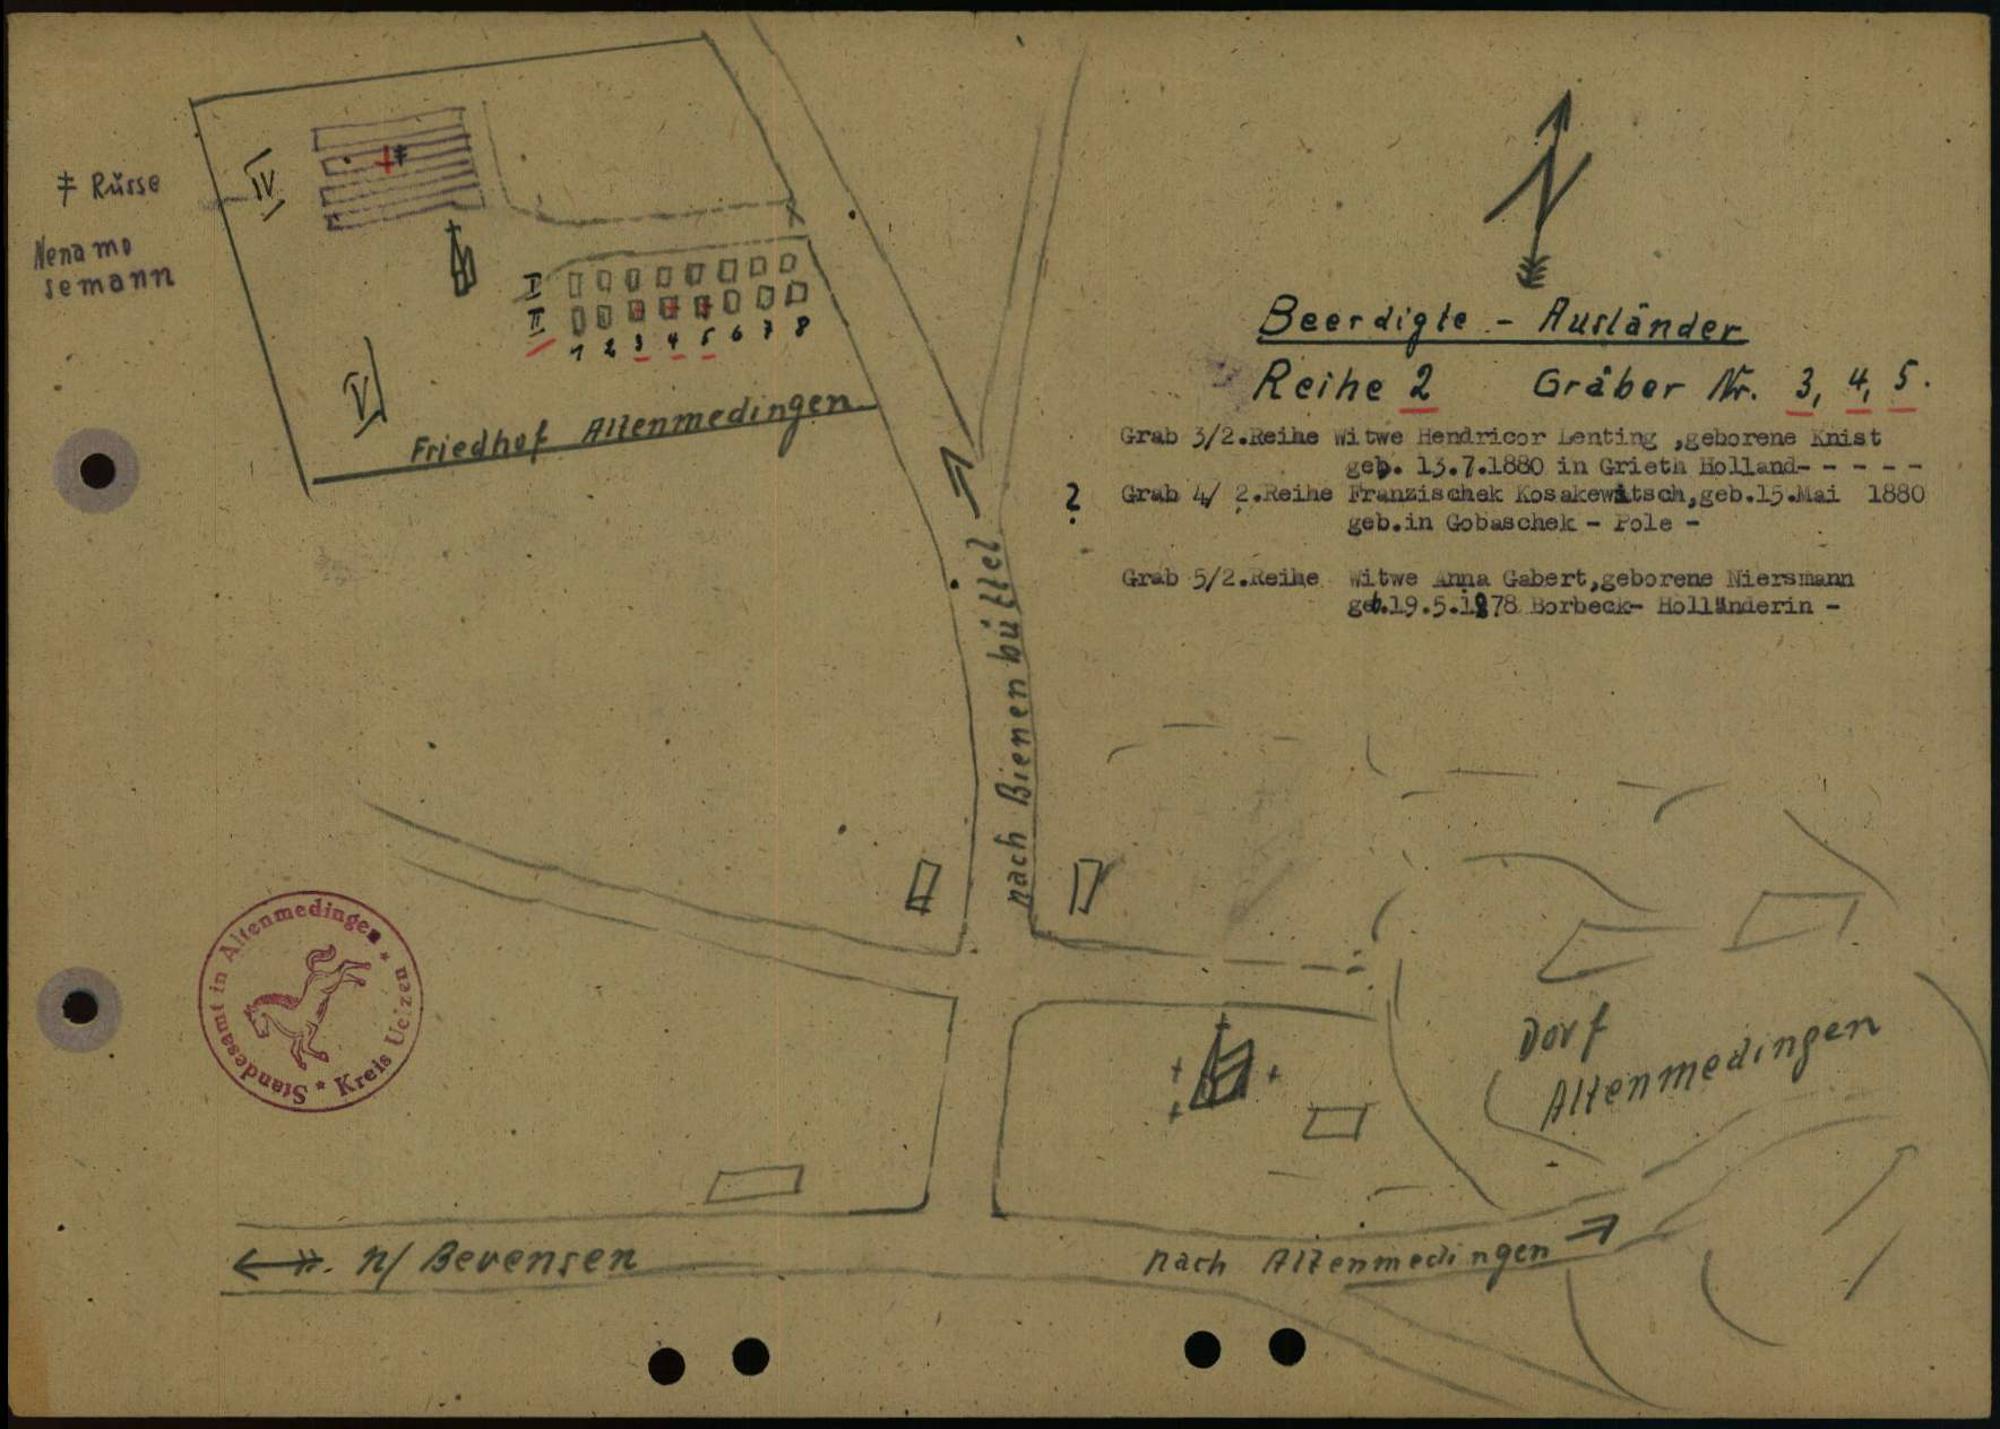 ‡ Russe
Nenamo
semann
IV
V
I
II
1 2 3 4 5 6 7 8
Friedhof Altenmedingen
N
Beerdigte - Ausländer
Reihe 2 Gräber Nr. 3, 4, 5.
Grab 3/2.Reihe Witwe Hendricor Lenting ,geborene Knist
geb. 13.7.1880 in Grieth Holland- - - - -
? Grab 4/ 2.Reihe Franzischek Kosakewitsch,geb.15.Mai 1880
geb.in Gobaschek - Pole -
Grab 5/2.Reihe Witwe Anna Gabert,geborene Niersmann
geb.19.5.1878 Borbeck- Holländerin -
nach Bienenbüttel
Standesamt in Altenmedingen * Kreis Uelzen *
Dorf
Altenmedingen
n/ Bevensen
nach Altenmedingen